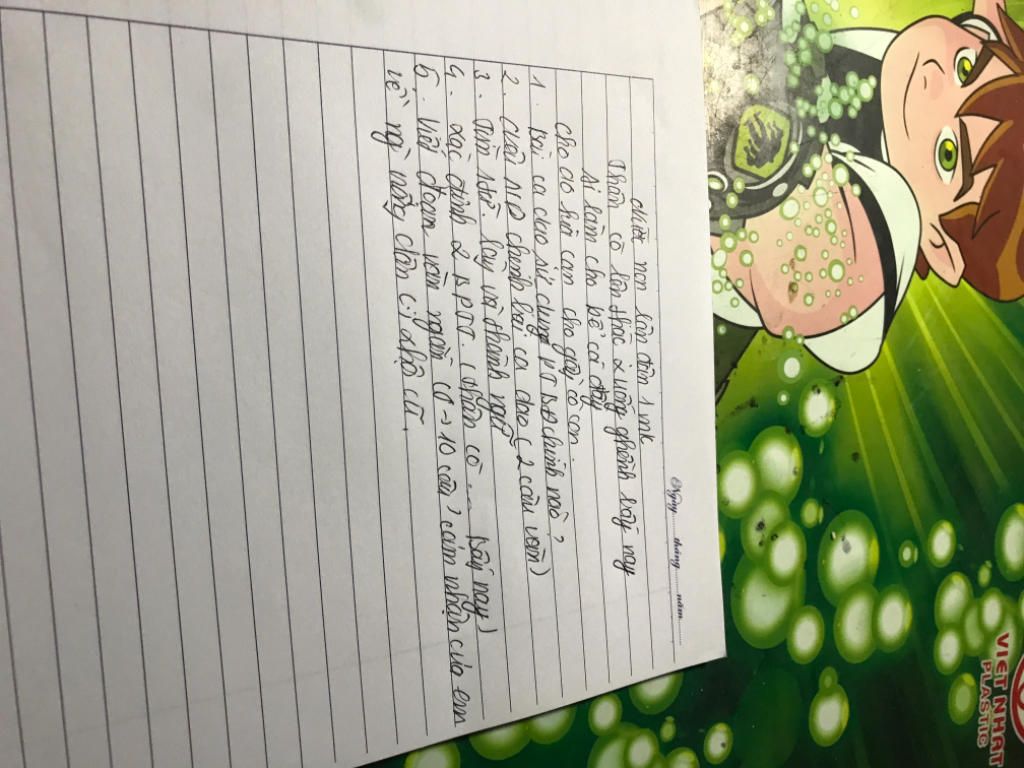 Ngày......tháng......năm......
Nước non lận đận 1 mk
Thân cò lên thác xuống ghềnh bấy nay
Ai làm cho bể cả đầy
cho ao kia cạn cho gầy cò con.
1. Bài ca dao sử dụng PT BĐ chính nào?
2. của ND chính bài ca dao (2 câu văn)
3. Tìm 1 từ láy và thành ngữ
4. xác định 2 b PTT (thân cò ... bấy nay)
5. viết đoạn văn ngắn (7 -> 10 câu) cảm nhận của em
về ng nông dân c. nhà cũ.
VIET NHAT
PLASTIC